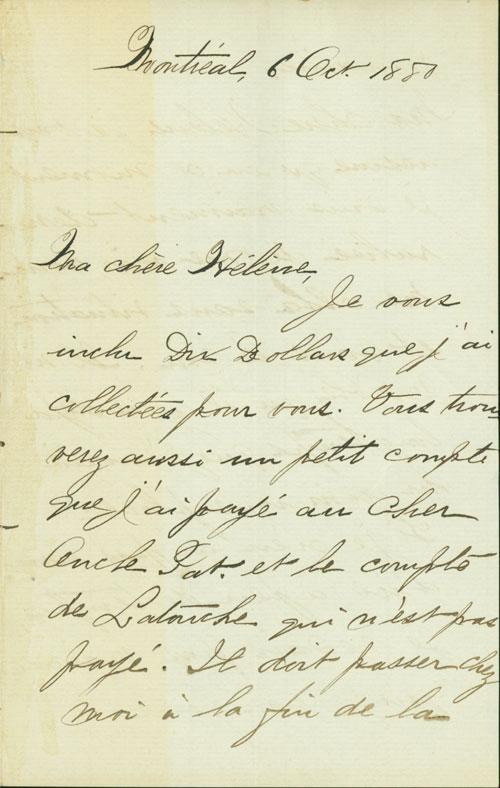 Montréal, 6 Oct. 1880
Ma chère Hélène,
Je vous
inclu Dix Dollars que j'ai
collectées pour vous. Vous trou-
verez aussi un petit compte
que j'ai payé au cher
Oncle Pat. et le compte
de Latouche qui n'est pas
payé. Il doit passer chez
moi à la fin de la